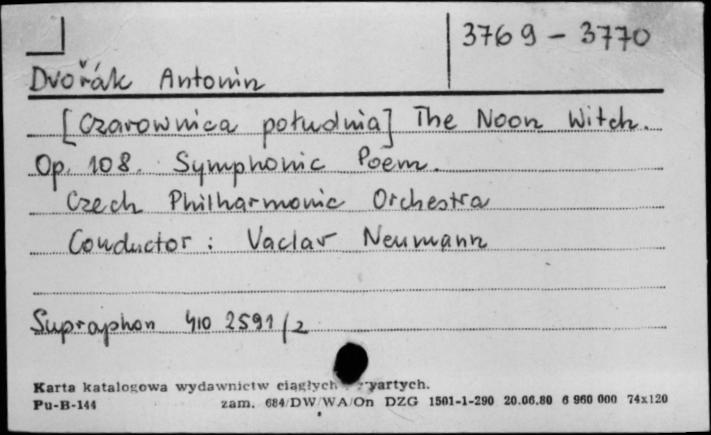 3769 - 3770
Dvořák Antonin
[Czarownica południa] The Noon Witch.
Op. 108. Symphonic Poem.
Czech Philharmonic Orchestra
Conductor: Vaclav Neumann
Supraphon 410 2591/2
Karta katalogowa wydawnictw ciągłych zwartych.
Pu-B-144 zam. 684/DW/WA/On DZG 1501-1-290 20.06.80 6 960 000 74x120